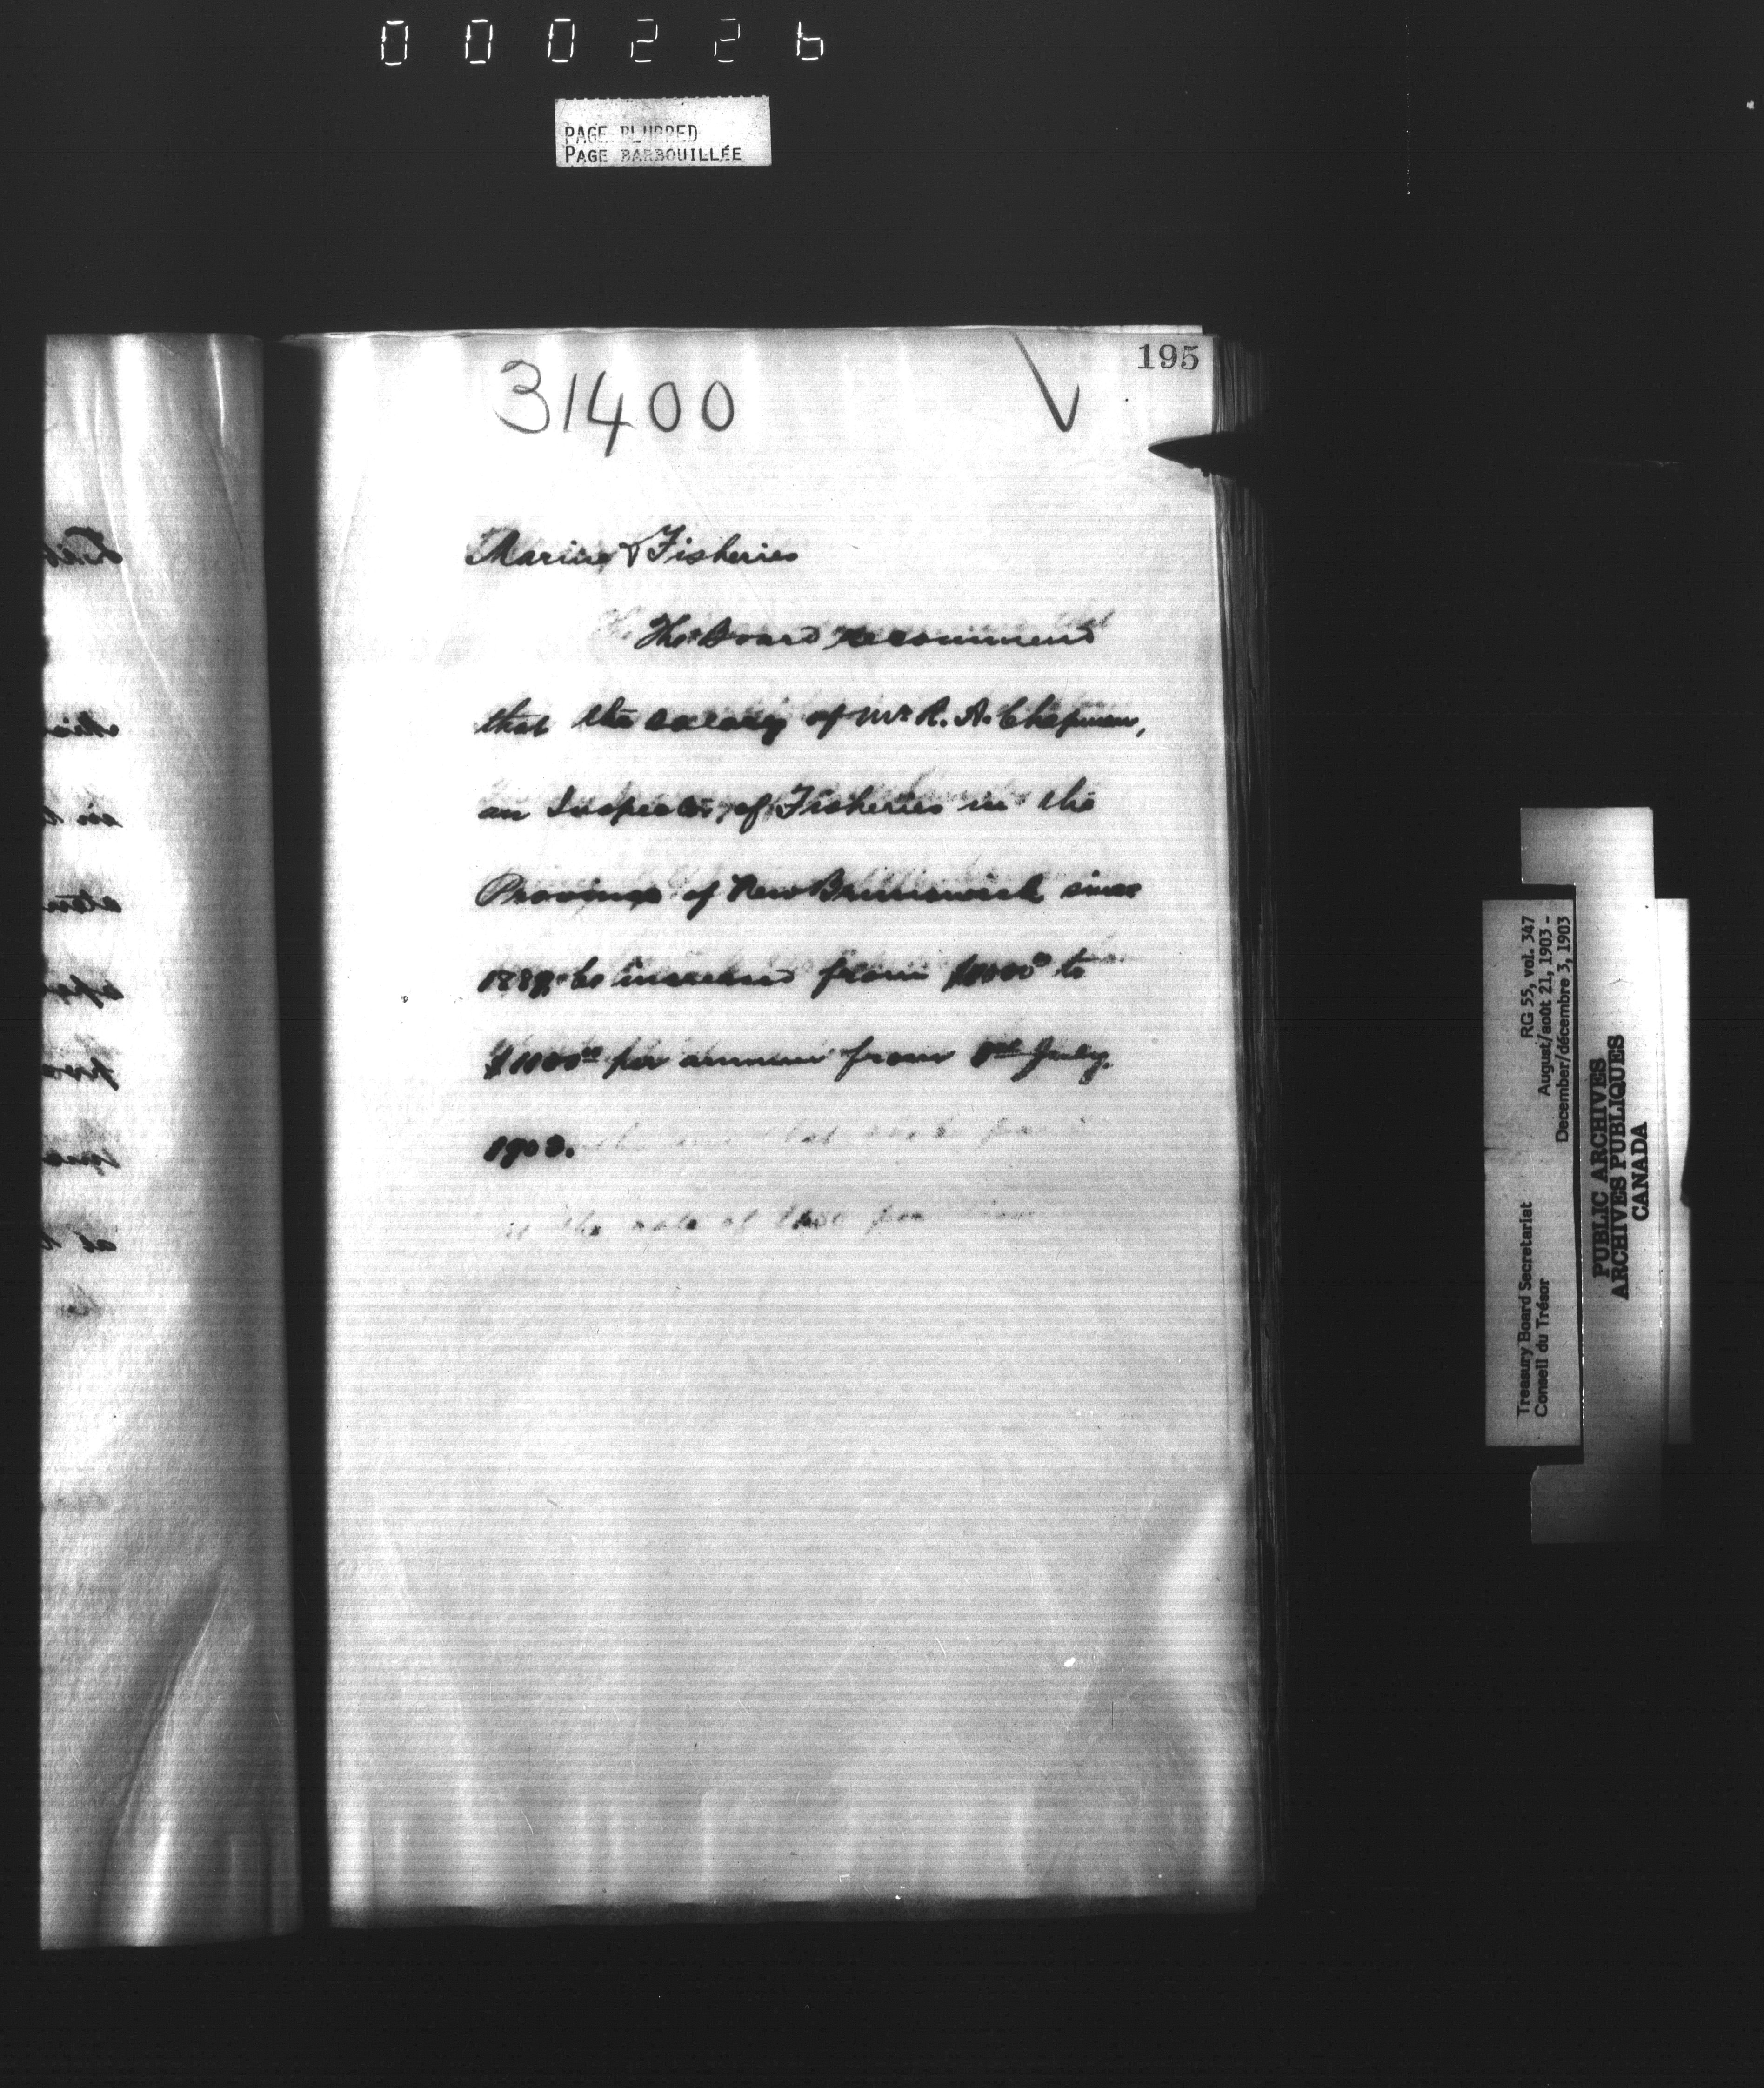 000226
PAGE BLURRED
PAGE BARBOUILLÉE
195
31400
Marine & Fisheries
The Board recommend
that the salary of Mr R. A. Chapman,
an Inspector of Fisheries in the
Province of New Brunswick since
be increased from to
$1100 00 per annum from 1st July.
1903.
at the rate of per
Treasury Board Secretariat RG 55, vol. 347
Conseil du Trésor August/août 21, 1903 -
December/décembre 3, 1903
PUBLIC ARCHIVES
ARCHIVES PUBLIQUES
CANADA